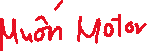 Muôn Motor